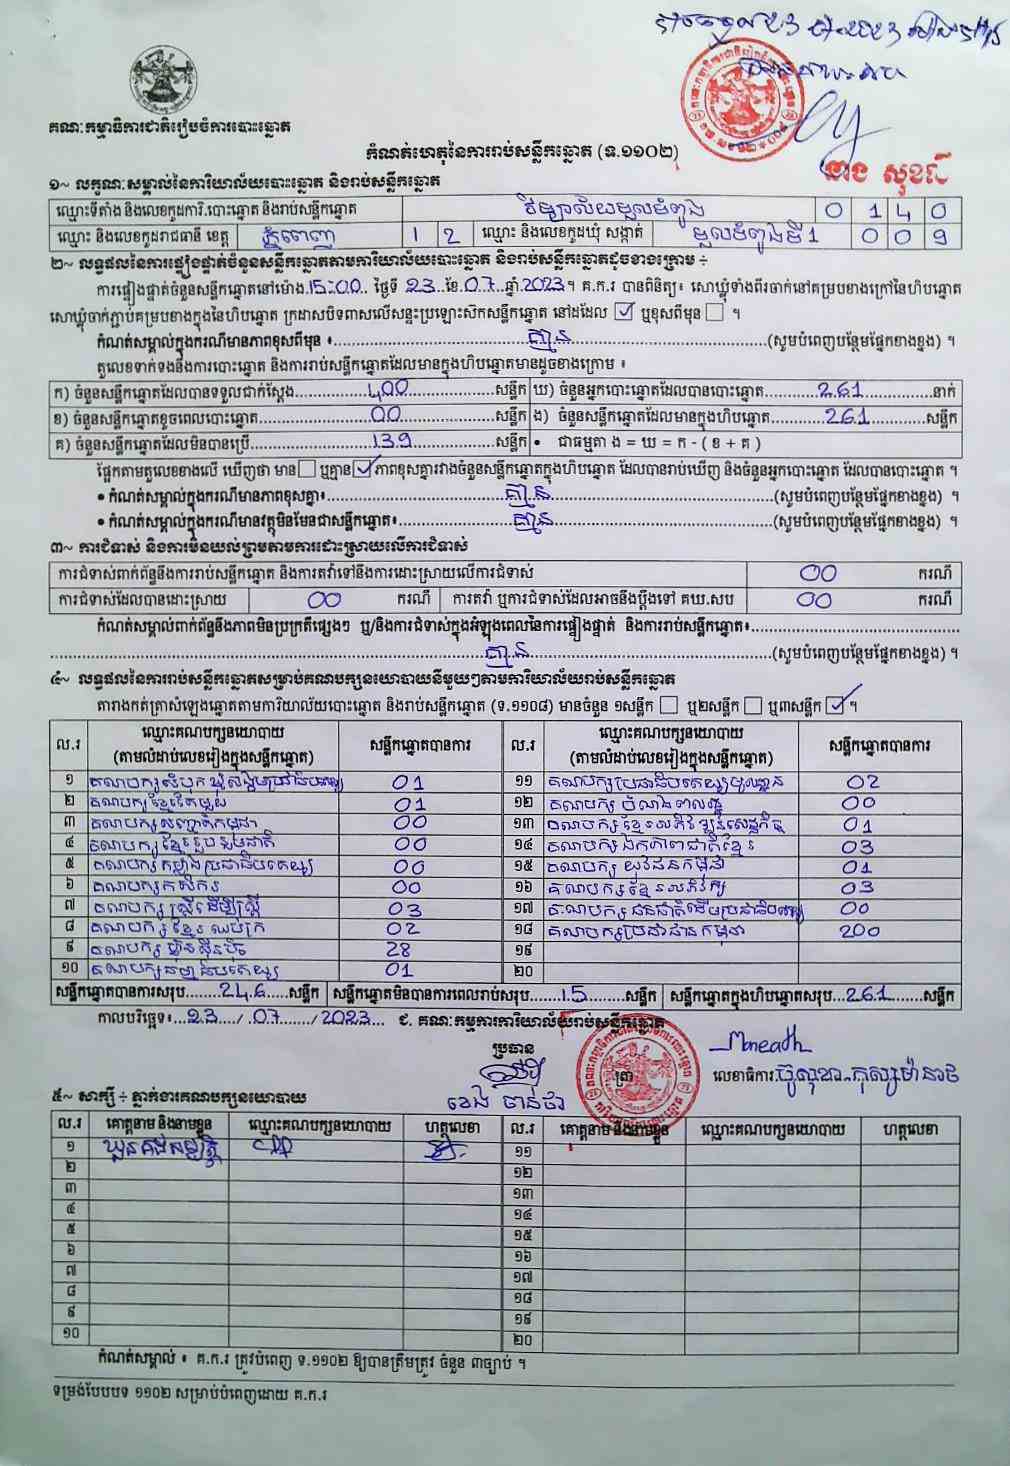 គណៈកម្មាធិការជាតិរៀបចំការបោះឆ្នោត
កំណត់ហេតុនៃការរាប់សន្លឹកឆ្នោត (ទ.១១០២)
នាង សុខលី
១~ លក្ខណៈសម្គាល់នៃការិយាល័យបោះឆ្នោត និងរាប់សន្លឹកឆ្នោត
ឈ្មោះទីតាំង និងលេខកូដការិ.បោះឆ្នោត និងរាប់សន្លឹកឆ្នោត វិទ្យាល័យទួលទំពូង 0 1 4 0
ឈ្មោះ និងលេខកូដរាជធានី ខេត្ត ភ្នំពេញ 1 2 ឈ្មោះ និងលេខកូដឃុំ សង្កាត់ ទួលទំពូងទី1 0 0 9
២~ លទ្ធផលនៃការផ្ទៀងផ្ទាត់ចំនួនសន្លឹកឆ្នោតតាមការិយាល័យបោះឆ្នោត និងរាប់សន្លឹកឆ្នោតដូចខាងក្រោម ÷
ការផ្ទៀងផ្ទាត់ចំនួនសន្លឹកឆ្នោតនៅម៉ោង 15:00 ថ្ងៃទី 23 ខែ 07 ឆ្នាំ 2023។ គ.ក.រ បានពិនិត្យ៖ សោឃ្លុំទាំងពីរចាក់នៅគម្របខាងក្រៅនៃហិបឆ្នោត
សោឃ្លុំចាក់ភ្ជាប់គម្របខាងក្នុងនៃហិបឆ្នោត ក្រដាសបិទពាសលើសន្ទះប្រឡោះស៊កសន្លឹកឆ្នោត នៅដដែល ☑ ឬខុសពីមុន ☐ ។
កំណត់សម្គាល់ក្នុងករណីមានភាពខុសពីមុន ៖ គ្មាន (សូមបំពេញបន្ថែមផ្នែកខាងខ្នង) ។
តួលេខទាក់ទងនឹងការបោះឆ្នោត និងការរាប់សន្លឹកឆ្នោតដែលមានក្នុងហិបឆ្នោតមានដូចខាងក្រោម ៖
ក) ចំនួនសន្លឹកឆ្នោតដែលបានទទួលជាក់ស្តែង 400 សន្លឹក ឃ) ចំនួនអ្នកបោះឆ្នោតដែលបានបោះឆ្នោត 261 នាក់
ខ) ចំនួនសន្លឹកឆ្នោតខូចពេលបោះឆ្នោត 00 សន្លឹក ង) ចំនួនសន្លឹកឆ្នោតដែលមានក្នុងហិបឆ្នោត 261 សន្លឹក
គ) ចំនួនសន្លឹកឆ្នោតដែលមិនបានប្រើ 139 សន្លឹក • ជាធម្មតា ង = ឃ = ក - ( ខ + គ )
ផ្អែកតាមតួលេខខាងលើ ឃើញថា មាន ☐ ឬគ្មាន ☑ ភាពខុសគ្នារវាងចំនួនសន្លឹកឆ្នោតក្នុងហិបឆ្នោត ដែលបានរាប់ឃើញ និងចំនួនអ្នកបោះឆ្នោត ដែលបានបោះឆ្នោត ។
• កំណត់សម្គាល់ក្នុងករណីមានភាពខុសគ្នា៖ គ្មាន (សូមបំពេញបន្ថែមផ្នែកខាងខ្នង) ។
• កំណត់សម្គាល់ក្នុងករណីមានវត្ថុមិនមែនជាសន្លឹកឆ្នោត៖ គ្មាន (សូមបំពេញបន្ថែមផ្នែកខាងខ្នង) ។
៣~ ការជំទាស់ និងការមិនយល់ព្រមតាមការដោះស្រាយលើការជំទាស់
ការជំទាស់ពាក់ព័ន្ធនឹងការរាប់សន្លឹកឆ្នោត និងការតវ៉ាទៅនឹងការដោះស្រាយលើការជំទាស់ 00 ករណី
ការជំទាស់ដែលបានដោះស្រាយ 00 ករណី ការតវ៉ា ឬការជំទាស់ដែលអាចនឹងប្តឹងទៅ គឃ.សប 00 ករណី
កំណត់សម្គាល់ពាក់ព័ន្ធនឹងភាពមិនប្រក្រតីផ្សេងៗ ឬ/និងការជំទាស់ក្នុងអំឡុងពេលនៃការផ្ទៀងផ្ទាត់ និងការរាប់សន្លឹកឆ្នោត៖
គ្មាន (សូមបំពេញបន្ថែមផ្នែកខាងខ្នង) ។
៤~ លទ្ធផលនៃការរាប់សន្លឹកឆ្នោតសម្រាប់គណបក្សនយោបាយនីមួយៗតាមការិយាល័យរាប់សន្លឹកឆ្នោត
តារាងកត់ត្រាសំឡេងឆ្នោតតាមការិយាល័យបោះឆ្នោត និងរាប់សន្លឹកឆ្នោត (ទ.១១០៨) មានចំនួន ១សន្លឹក ☐ ឬ២សន្លឹក ☐ ឬ៣សន្លឹក ☑ ។
ល.រ ឈ្មោះគណបក្សនយោបាយ (តាមលំដាប់លេខរៀងក្នុងសន្លឹកឆ្នោត) សន្លឹកឆ្នោតបានការ ល.រ ឈ្មោះគណបក្សនយោបាយ (តាមលំដាប់លេខរៀងក្នុងសន្លឹកឆ្នោត) សន្លឹកឆ្នោតបានការ
១ គណបក្សសំបុកឃ្មុំសង្គមប្រជាធិបតេយ្យ 01 ១១ គណបក្សប្រជាធិបតេយ្យមូលដ្ឋាន 02
២ គណបក្សខ្មែរតែមួយ 01 ១២ គណបក្ស បំណងពលរដ្ឋ 00
៣ គណបក្សសញ្ជាតិកម្ពុជា 00 ១៣ គណបក្សខ្មែរអភិវឌ្ឍន៍សេដ្ឋកិច្ច 01
៤ គណបក្សខ្មែររួបរួមជាតិ 00 ១៤ គណបក្ស ឯកភាពជាតិខ្មែរ 03
៥ គណបក្សកម្លាំងប្រជាធិបតេយ្យ 00 ១៥ គណបក្ស យុវជនកម្ពុជា 01
៦ គណបក្សកសិករ 00 ១៦ គណបក្សខ្មែរអភិរក្ស 03
៧ គណបក្សស្ត្រីដើម្បីស្ត្រី 03 ១៧ គណបក្ស ជនជាតិដើមប្រជាធិបតេយ្យ 00
៨ គណបក្ស ខ្មែរឈប់ក្រ 02 ១៨ គណបក្សប្រជាជនកម្ពុជា 200
៩ គណបក្ស ហ្វ៊ុនស៊ិនប៉ិច 28 ១៩
១០ គណបក្សធម្មាធិបតេយ្យ 01 ២០
សន្លឹកឆ្នោតបានការសរុប 246 សន្លឹក សន្លឹកឆ្នោតមិនបានការពេលរាប់សរុប 15 សន្លឹក សន្លឹកឆ្នោតក្នុងហិបឆ្នោតសរុប 261 សន្លឹក
កាលបរិច្ឆេទ៖ 23 / 07 / 2023 ជ. គណៈកម្មការការិយាល័យរាប់សន្លឹកឆ្នោត
ប្រធាន Moneath
ត្រា លេខាធិការ
ខេង ចាន់ថា
៥~ សាក្សី ÷ ភ្នាក់ងារគណបក្សនយោបាយ
ល.រ គោត្តនាម និងនាមខ្លួន ឈ្មោះគណបក្សនយោបាយ ហត្ថលេខា ល.រ គោត្តនាម និងនាមខ្លួន ឈ្មោះគណបក្សនយោបាយ ហត្ថលេខា
១ CPP ១១
២ ១២
៣ ១៣
៤ ១៤
៥ ១៥
៦ ១៦
៧ ១៧
៨ ១៨
៩ ១៩
១០ ២០
កំណត់សម្គាល់ ៖ គ.ក.រ ត្រូវបំពេញ ទ.១១០២ ឱ្យបានត្រឹមត្រូវ ចំនួន ៣ច្បាប់ ។
ទម្រង់បែបបទ ១១០២ សម្រាប់បំពេញដោយ គ.ក.រ